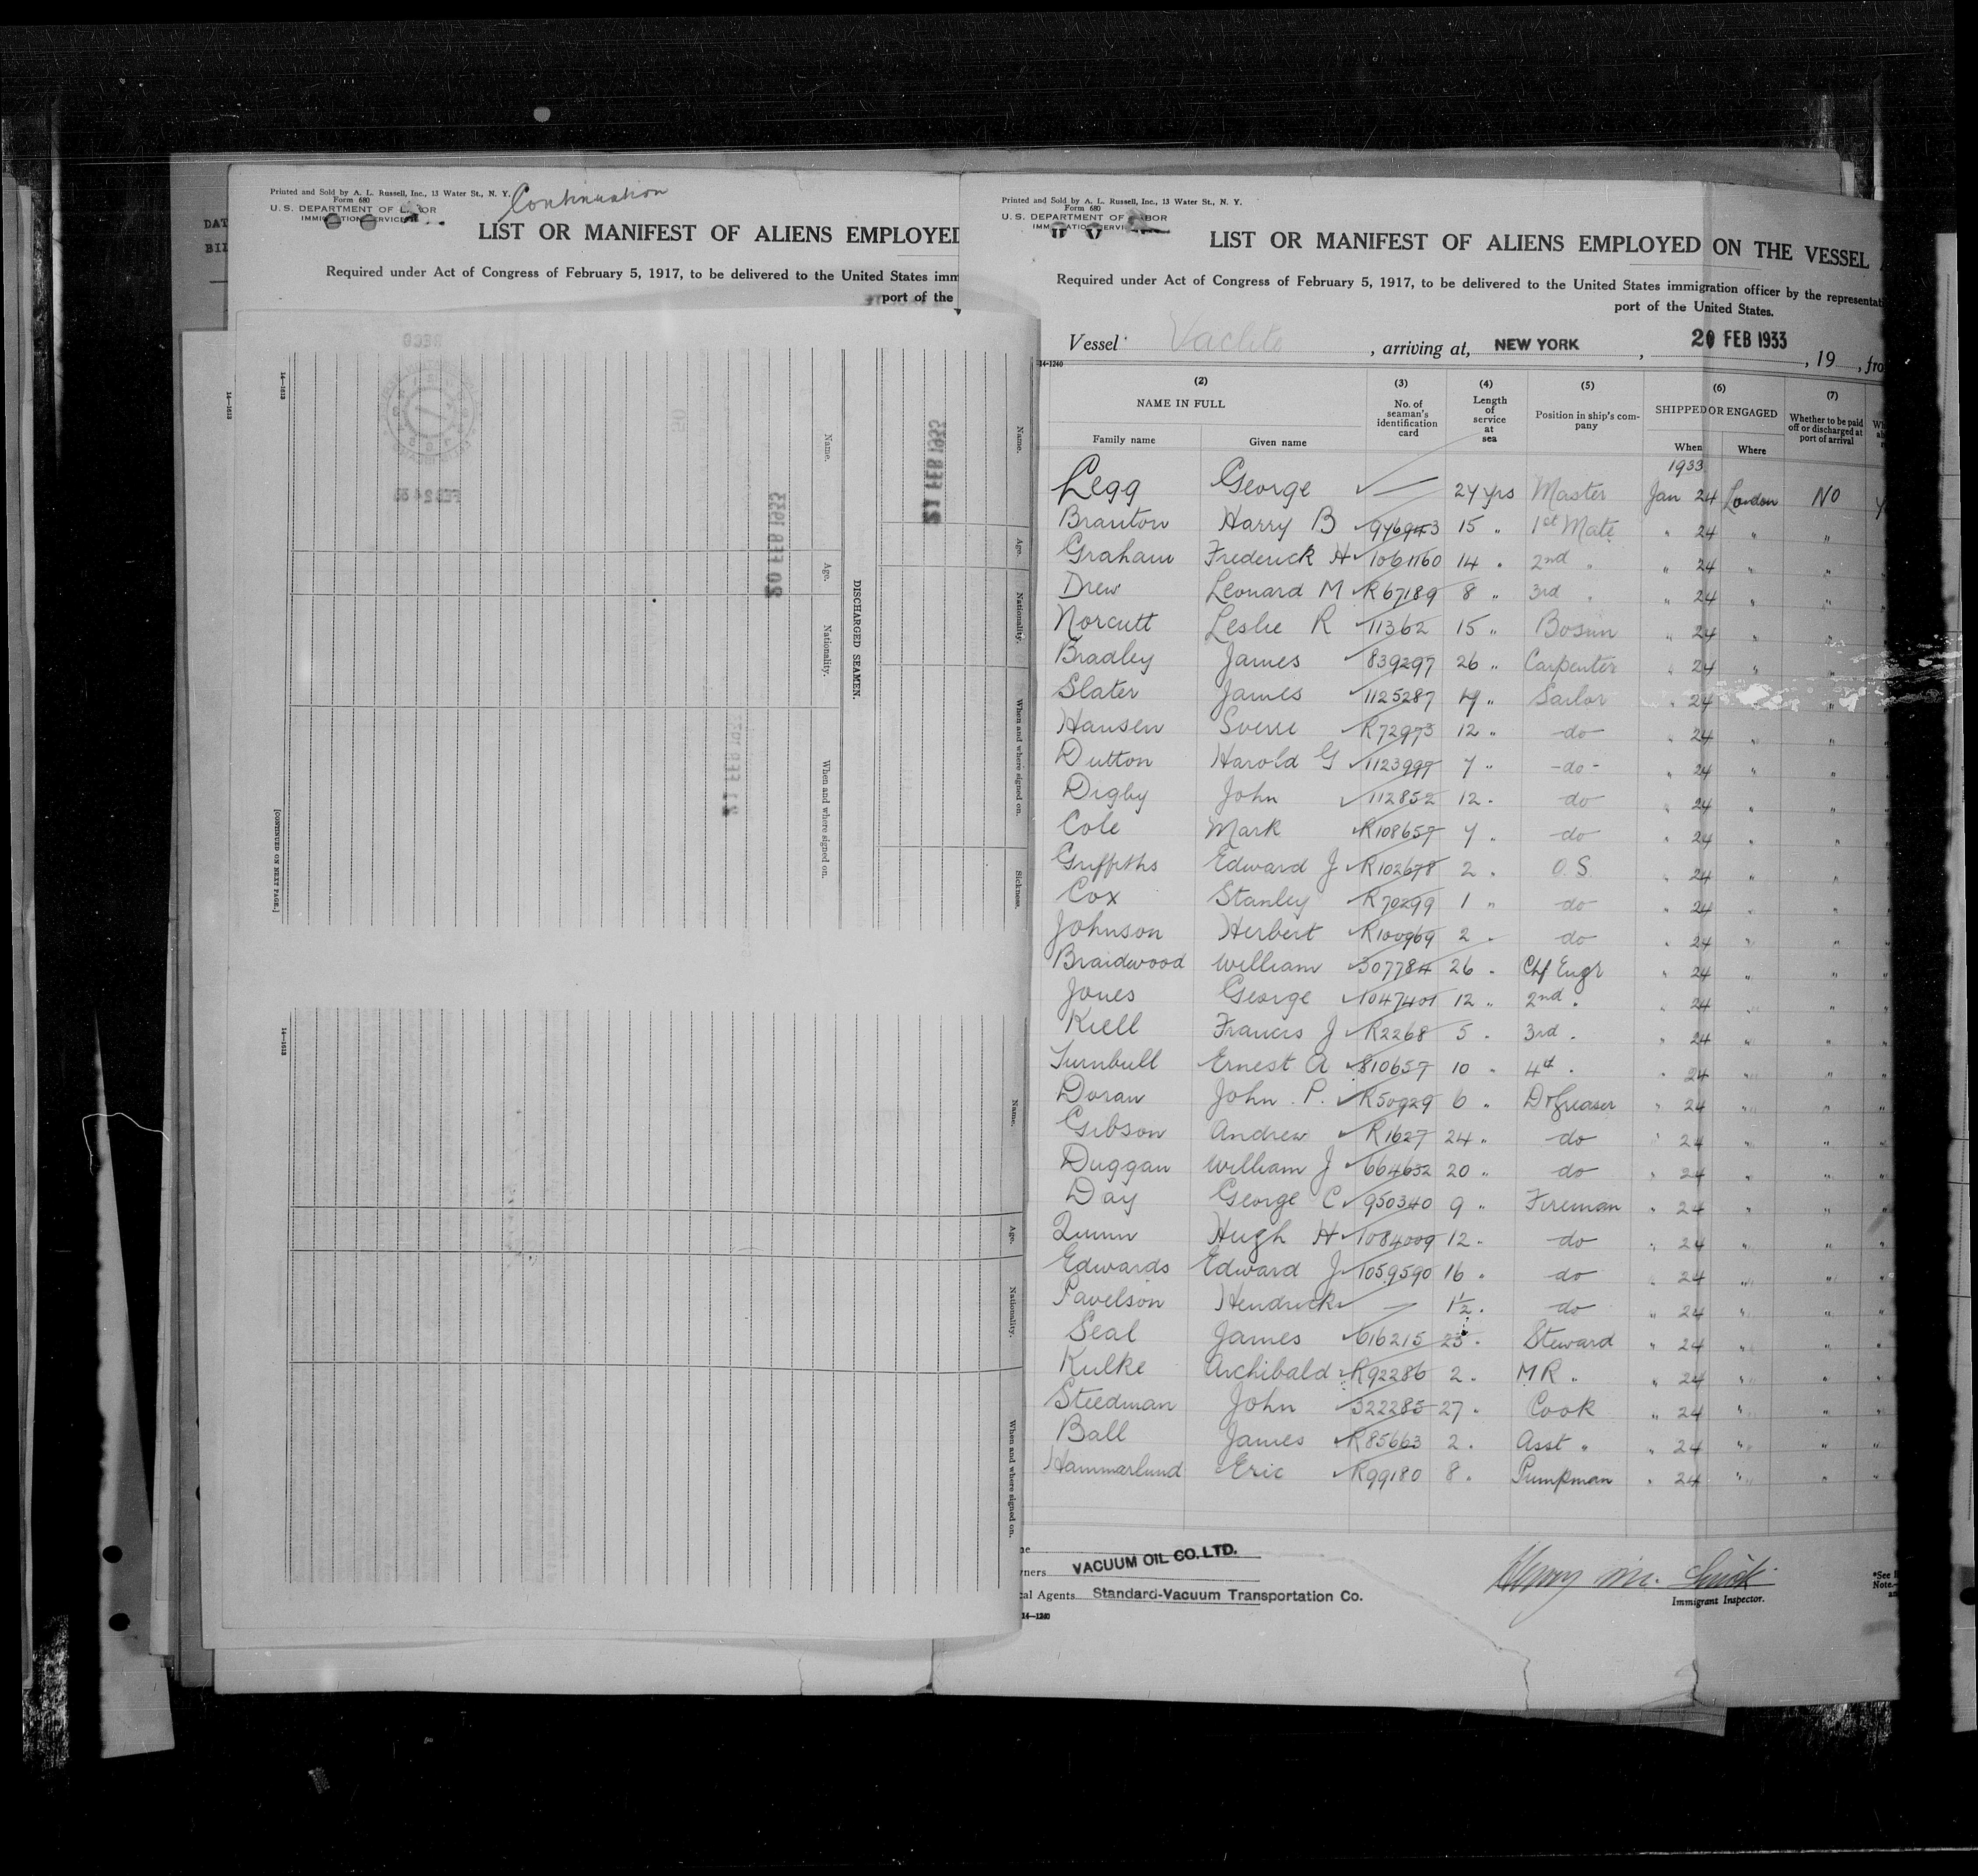 DAT
BIL
Printed and Sold by A. L. Russell, Inc., 13 Water St., N. Y.
Form 680
U. S. DEPARTMENT OF LABOR
Continuation
LIST OR MANIFEST OF ALIENS EMPLOYED
Required under Act of Congress of February 5, 1917, to be delivered to the United States imm
port of the
14—1613
14—1613
Name.
Age.
Nationality.
When and where signed on.
DISCHARGED SEAMEN.
Name.
Age.
Nationality.
When and where signed on.
Sickness.
[CONTINUED ON NEXT PAGE.]
20 FEB 1933
21 FEB 1933
21 FEB 1933
14—1613
Name.
Age.
Nationality.
When and where signed on.
Printed and Sold by A. L. Russell, Inc., 13 Water St., N. Y.
Form 680
U. S. DEPARTMENT OF LABOR
LIST OR MANIFEST OF ALIENS EMPLOYED ON THE VESSEL
Required under Act of Congress of February 5, 1917, to be delivered to the United States immigration officer by the representati
port of the United States.
Vessel Vaclite, arriving at, NEW YORK, 20 FEB 1933, 19, fro
14-1240
(2) (3) (4) (5) (6) (7)
NAME IN FULL No. of seaman's identification card Length of service at sea Position in ship's company SHIPPED OR ENGAGED Whether to be paid off or discharged at port of arrival
Family name Given name When Where
1933
Legg George — 24 yrs Master Jan 24 London No
Branton Harry B 976943 15 " 1st Mate " 24 " "
Graham Frederick H 1061160 14 " 2nd " " 24 " "
Drew Leonard M R67189 8 " 3rd " " 24 " "
Norcutt Leslie R 11362 15 " Bosun " 24 " "
Bradley James 839297 26 " Carpenter " 24 " "
Slater James 1125287 " Sailor " 24 " "
Hansen Sverre R72973 12 " do " 24 " "
Dutton Harold G 1123997 7 " do " 24 " "
Digby John 112852 12 " do " 24 " "
Cole Mark R108657 7 " do " 24 " "
Griffiths Edward J R102678 2 " O.S. " 24 " "
Cox Stanley R70299 1 " do " 24 " "
Johnson Herbert R100969 2 " do " 24 " "
Braidwood William 307784 26 " Chf Engr " 24 " "
Jones George 1047401 12 " 2nd " " 24 " "
Kiell Francis J R2268 5 " 3rd " " 24 " "
Turnbull Ernest A 810657 10 " 4th " " 24 " "
Doran John P. R50929 6 " D/Greaser " 24 " "
Gibson Andrew R1627 24 " do " 24 " "
Duggan William J 664632 20 " do " 24 " "
Day George C 950340 9 " Fireman " 24 " "
Quinn Hugh H 1084009 12 " do " 24 " "
Edwards Edward J 1059590 16 " do " 24 " "
Pavelson Hendrick — 1½ " do " 24 " "
Seal James 616215 25 " Steward " 24 " "
Kulke Archibald R92286 2 " M R " " 24 " "
Steedman John 322285 27 " Cook " 24 " "
Ball James R85663 2 " Asst " " 24 " "
Hammarlund Eric R99180 8 " Pumpman " 24 " "
ners VACUUM OIL CO. LTD.
al Agents Standard-Vacuum Transportation Co.
14—1240
Immigrant Inspector.
*See
Note.—